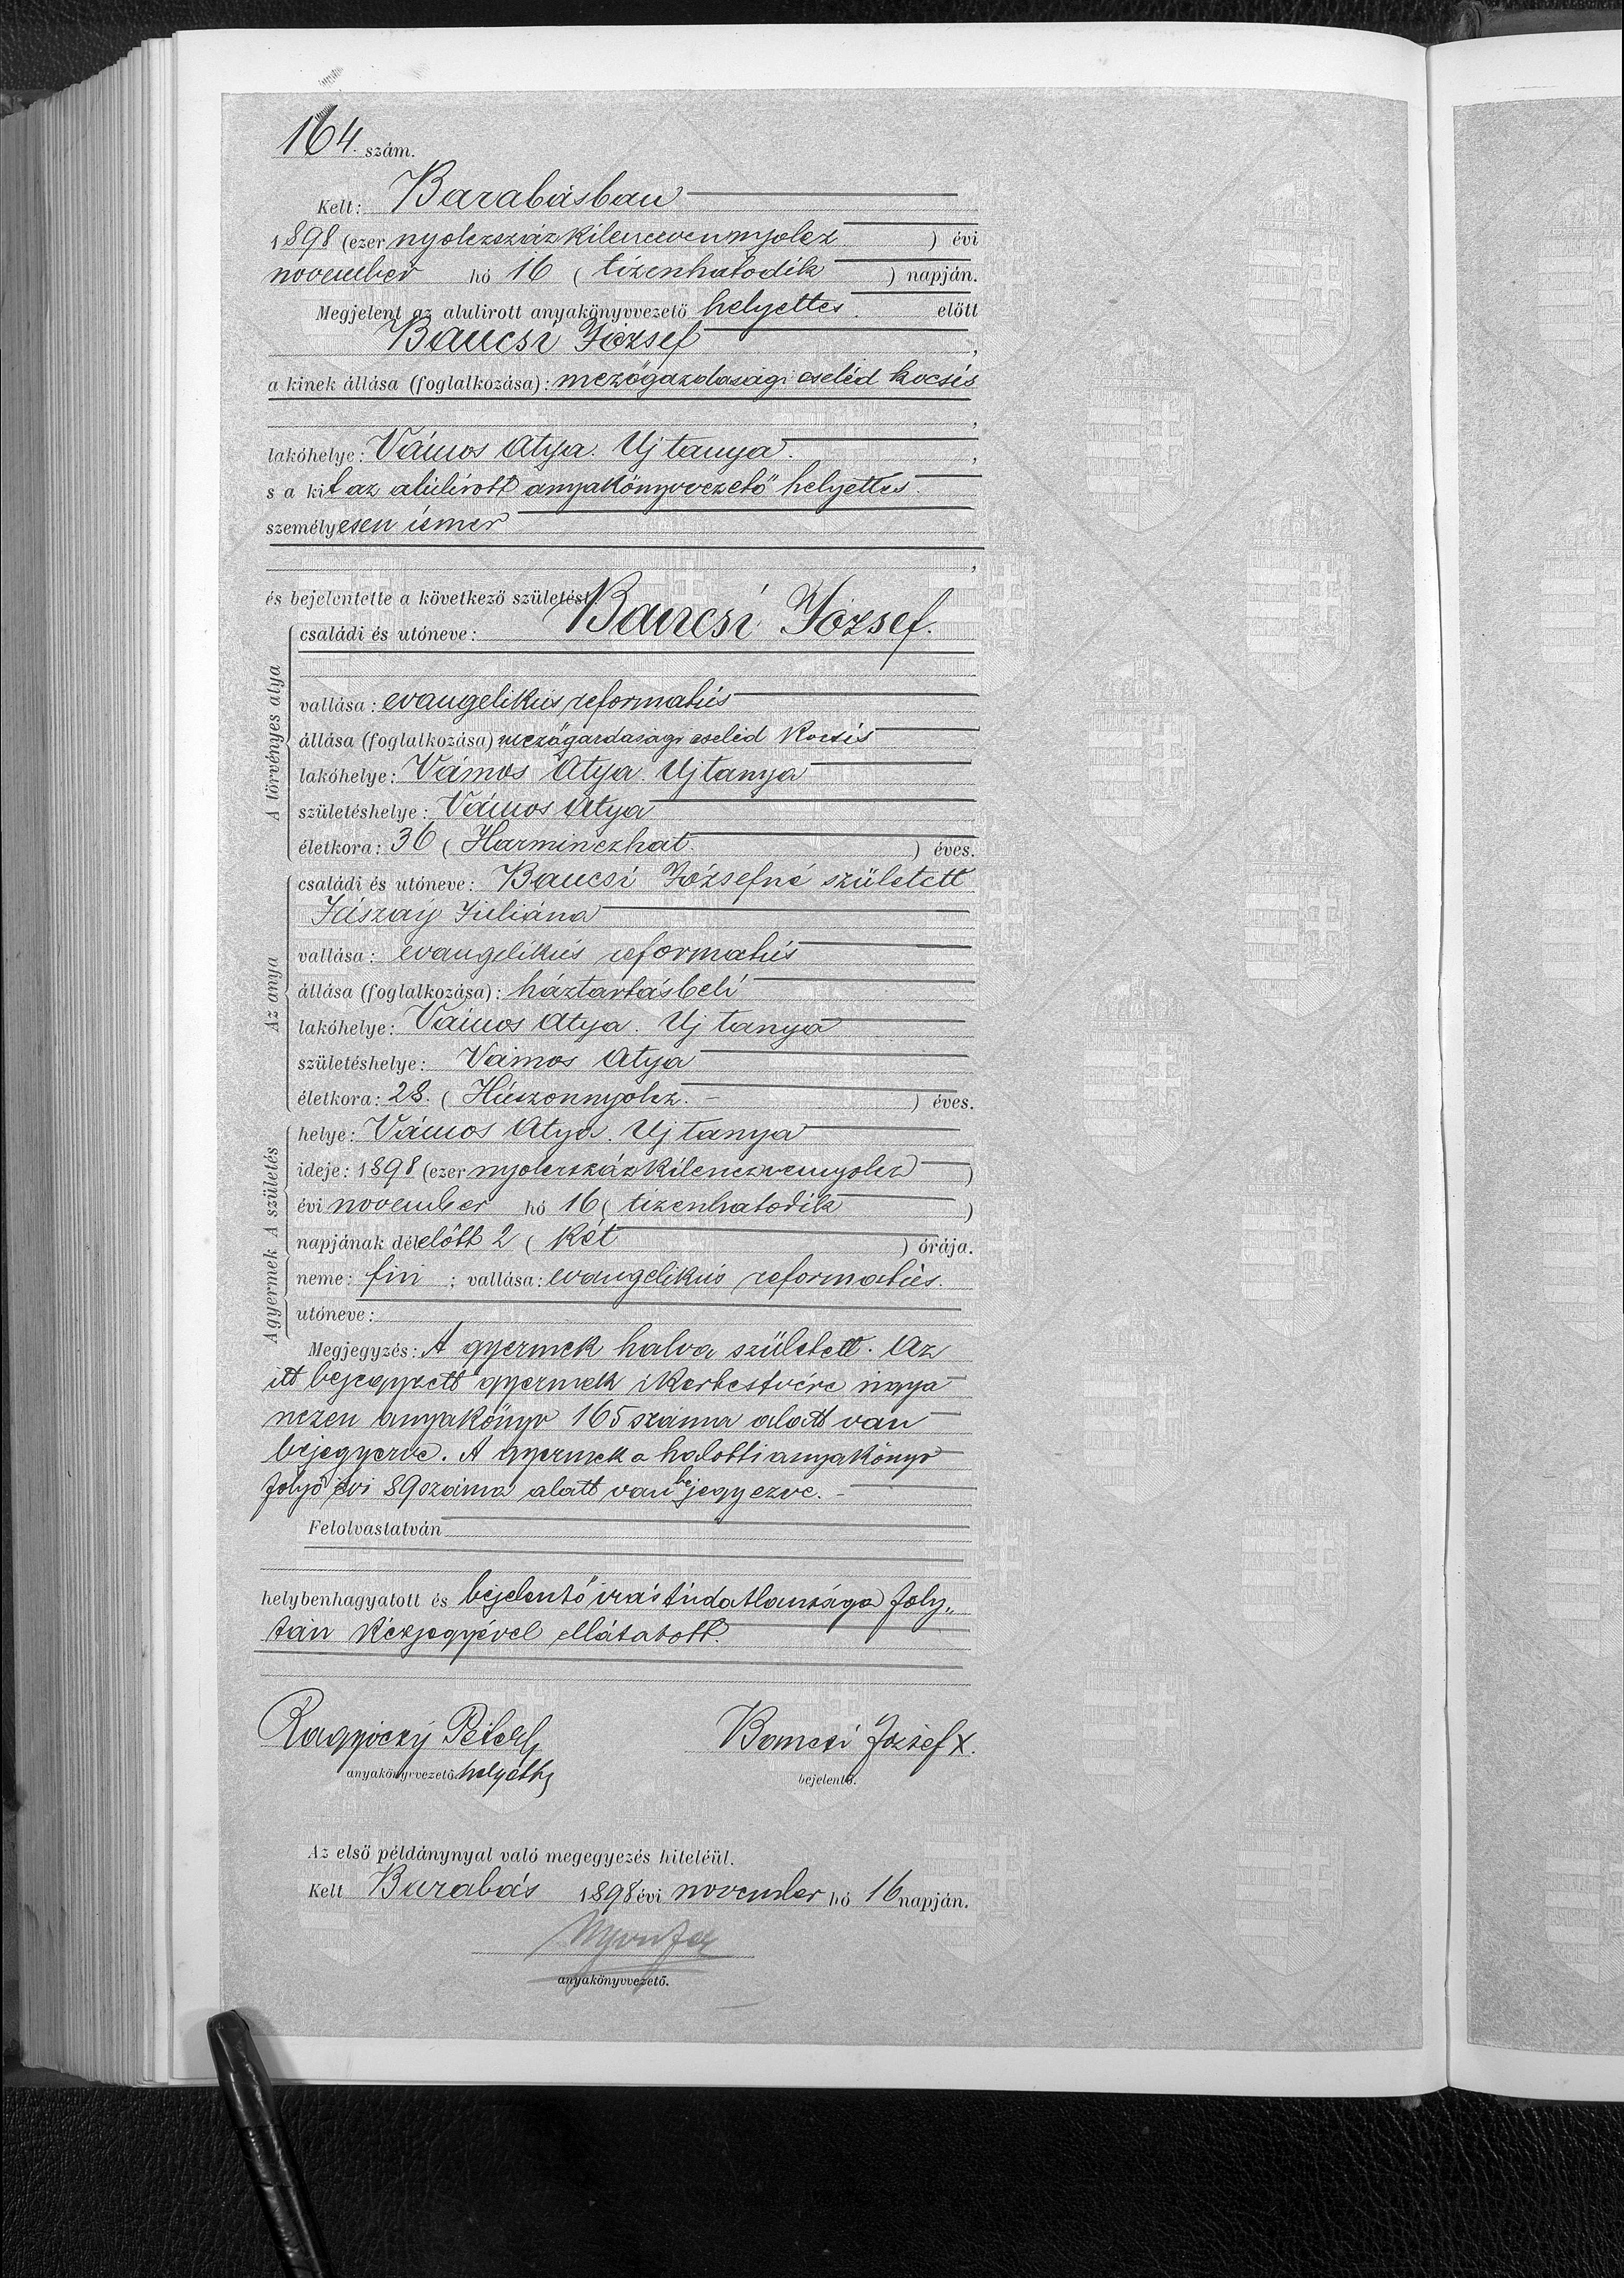 164. szám.
Kelt: Barabásban
1898 (ezer nyolczszázkilenczvennyolcz) évi
november hó 16 (tizenhatodik) napján.
Megjelent az alulirott anyakönyvvezető helyettes előtt
Bancsi József,
a kinek állása (foglalkozása): mezőgazdasági cseléd kocsis
,
lakóhelye: Vámos Atya. Uj tanya.,
s a kit az alúlirott anyakönyvvezető helyettes
személyesen ismer
,
és bejelentette a következő születést:
A törvényes atya
családi és utóneve: Bancsi József.
vallása: evangelikus reformatus
állása (foglalkozása) mezőgazdasági cseléd kocsis
lakóhelye: Vámos Atya. Uj tanya
születéshelye: Vámos Atya
életkora: 36 (Harminczhat.) éves.
Az anya
családi és utóneve: Bancsi Józsefné született
Jászay Juliána
vallása: evangelikus reformatus
állása (foglalkozása): háztartásbeli
lakóhelye: Vámos Atya. Uj tanya
születéshelye: Vámos Atya
életkora: 28. (Húszonnyolcz. -) éves.
A gyermek A születés
helye: Vámos Atya. Uj tanya
ideje: 1898 (ezer nyolczszázkilenczvennyolcz)
évi november hó 16 (tizenhatodik)
napjának délelőtt 2 (Két) órája.
neme: fiú; vallása: evangelikus reformatus.
utóneve:
Megjegyzés: A gyermek halva született. Az
itt bejegyzett gyermek ikertestvére ugya
nezen anyakönyv 165 száma alatt van
bejegyezve. A gyermek a halotti anyakönyv
folyó évi 89 száma alatt van bejegyezve. -
Felolvastatván
helybenhagyatott és bejelentő irástudatlansága foly„
tán kézjegyével ellátatott.
Péter Bancsi József X.
anyakönyvvezető helyettes bejelentő.
Az első példánynyal való megegyezés hiteléül.
Kelt Barabás 1898 évi november hó 16 napján.
anyakönyvvezető.